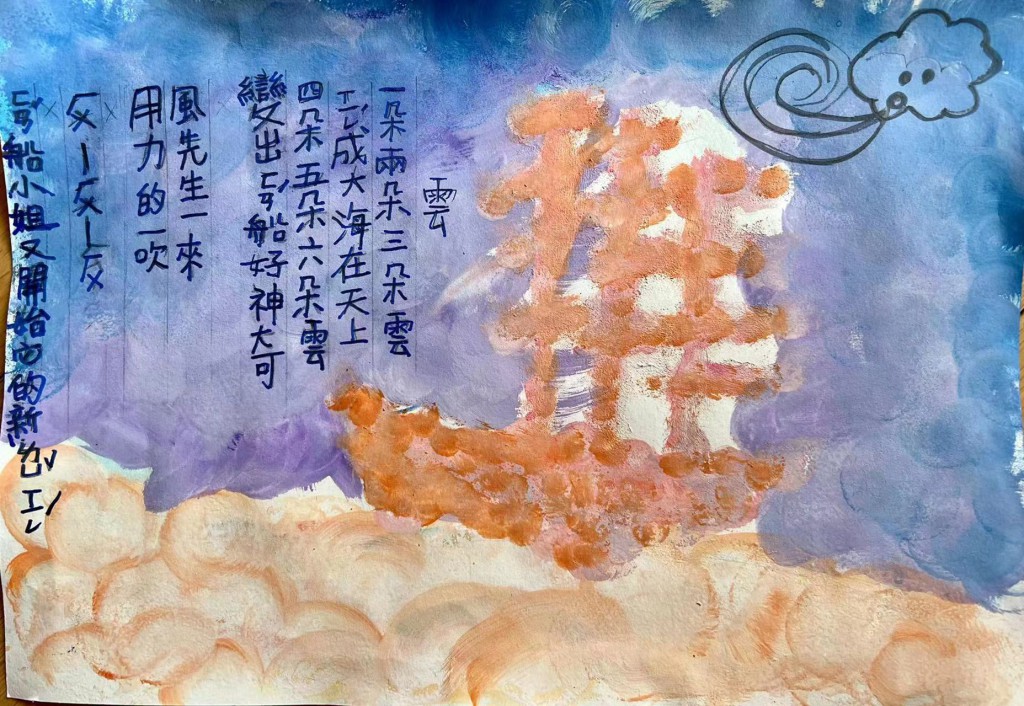 雲
一朵兩朵三朵雲
ㄒㄧㄥˊ成大海在天上
四朵五朵六朵雲
變出ㄈㄢˊ船好神奇
風先生一來
用力的一吹
ㄈㄢˊ船小姐又開始的新ㄌㄩˇㄒㄧㄥˊ